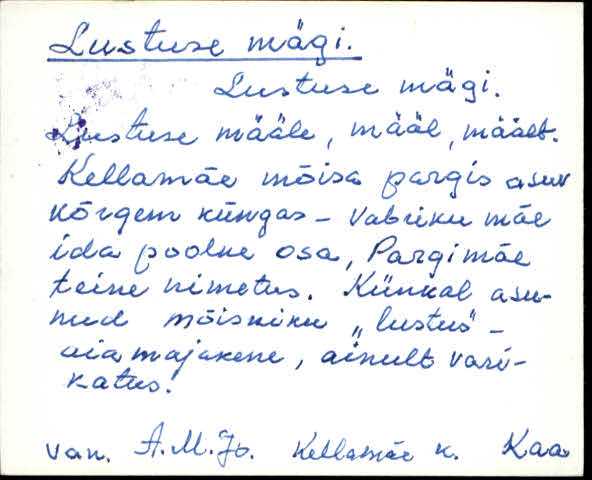 Lustuse mägi.
Lustuse mägi.
Lustuse määle, määl, mäält.
Kellamäe mõisa pargis asuv
kõrgem küngas - Vabriku mäe
ida poolne osa, Pargimäe
teine nimetus. Künkal asu-
nud mõisniku „lustus" -
aiamajakene, ainult vari-
katus.
van. A.M.Jo. Kellamäe k. Kaa